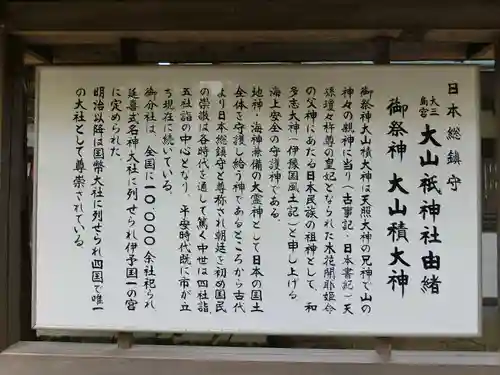 日本総鎮守
大三島宮
大山祇神社由緒
御祭神 大山積大神
御祭神大山積大神は天照大神の兄神で山の
神々の親神に当り（古事記・日本書記）天
孫瓊々杵尊の皇妃となられた木花開耶姫命
の父神にあたる日本民族の祖神として、和
多志大神（伊豫国風土記）と申し上げる
海上安全の守護神である。
地神・海神兼備の大霊神として日本の国土
全体を守護し給う神であるところから古代
より日本総鎮守と尊称され朝廷を初め国民
の崇敬は各時代を通して篤く中世は四社詣
五社詣の中心となり、平安時代既に市が立
ち現在に続いている。
御分社は、全国に一〇〇〇〇余社祀られ
延喜式名神大社に列せられ伊予国一の宮
に定められた。
明治以降は国幣大社に列せられ四国で唯一
の大社として尊崇されている。